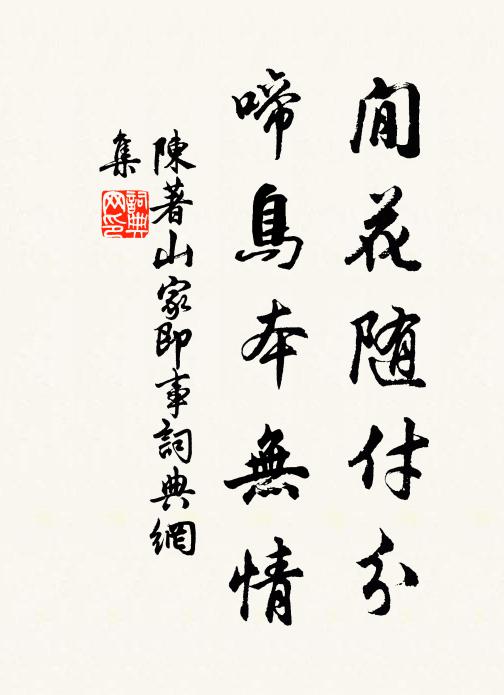 閒花随付分
啼鳥本無情
陳著山家即事詞典網
集
詞典
网印